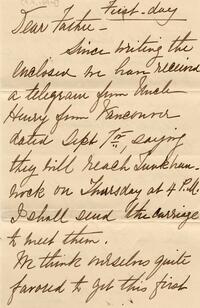 First-day
Dear Father -
Since writing the
enclosed we have received
a telegram from Uncle
Henry from Vancouver
dated Sept 7th saying
they will reach Tunkhan-
nock on Thursday at 4 P.M.
I shall send the carriage
to meet them.
We think ourselves quite
favored to get this first